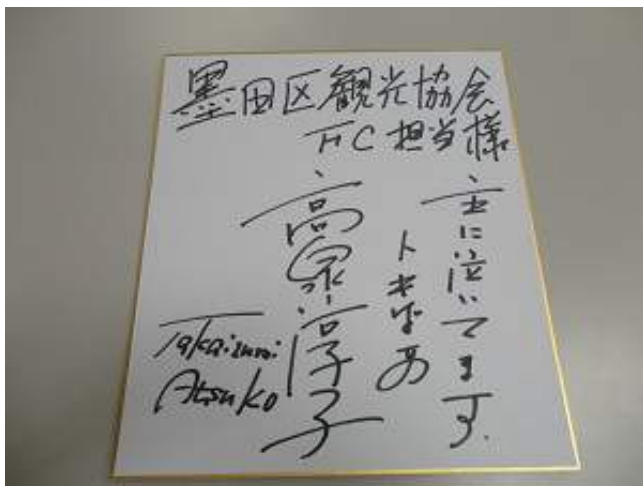 墨田区観光協会
FC担当様
主に泣いてます
トキばあ
高泉淳子
Takaizumi
Atsuko